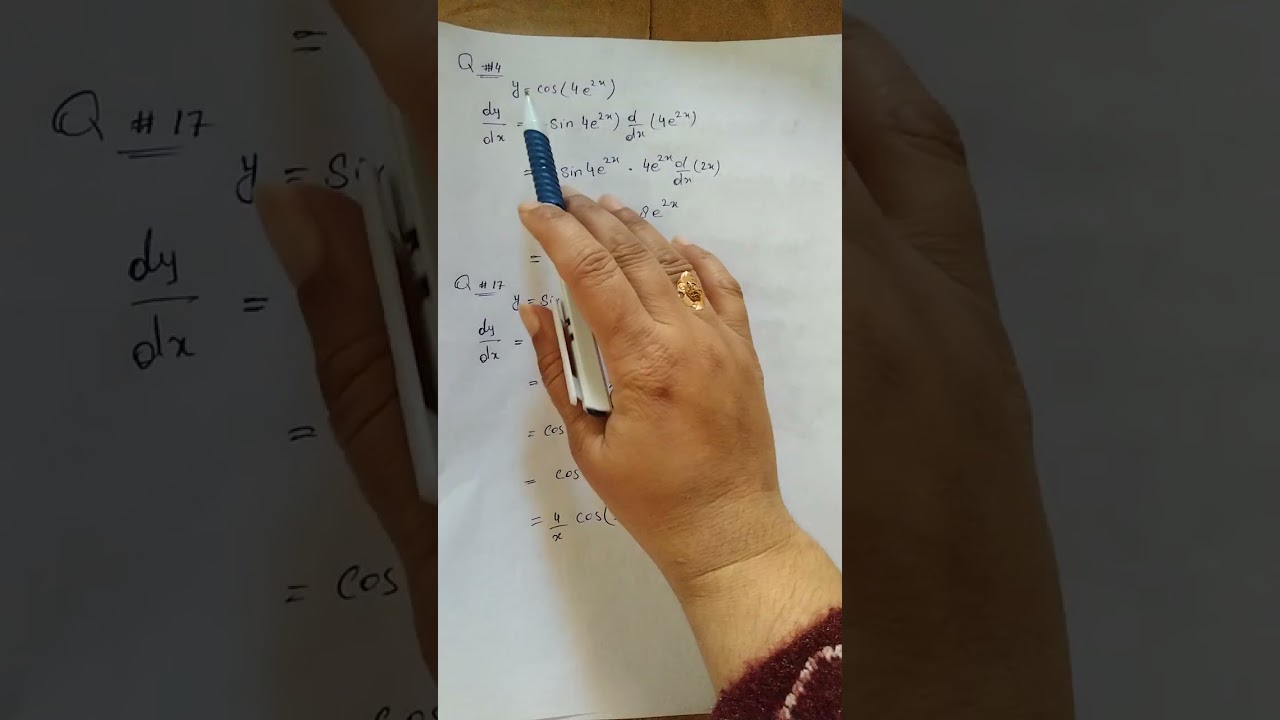 Q #4
y = cos(4e^{2x})
dy/dx = sin 4e^{2x}) d/dx (4e^{2x})
= sin 4e^{2x} · 4e^{2x} d/dx (2x)
8e^{2x}
=
Q #17
y = Sin
dy/dx =
=
= cos
= cos
= 4/x cos(
=
Q #17
y = Sin
dy/dx =
=
= cos